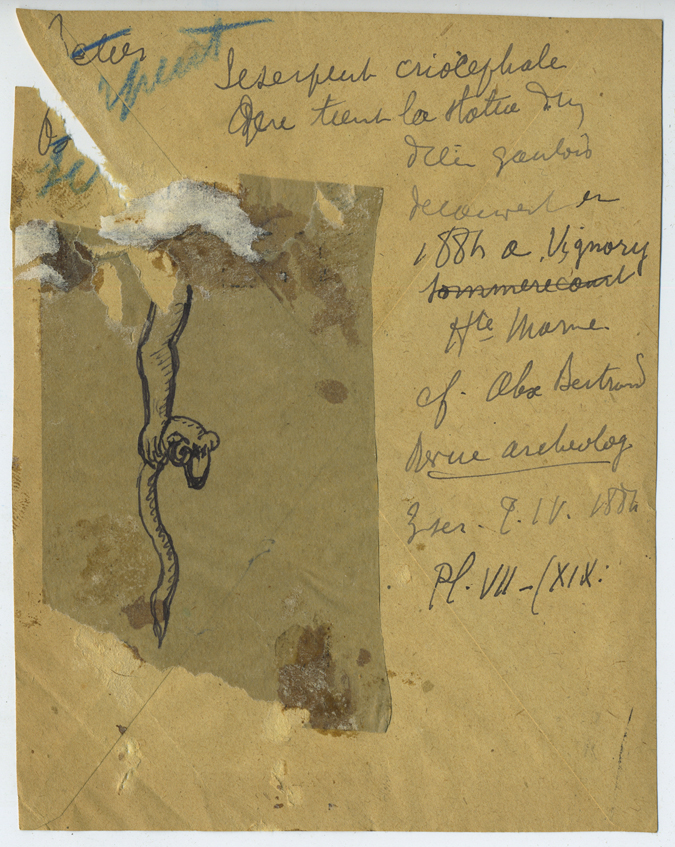 Serpent
Le serpent criocephale
que tient la statue d'un
dieu gaulois
decouvert en
1884 a Vignory
Sommerecourt
Hte Marne
cf. Alex Bertrand
Revue archeolog
3 ser. T. IV. 1884
Pl. VII - (XIX.